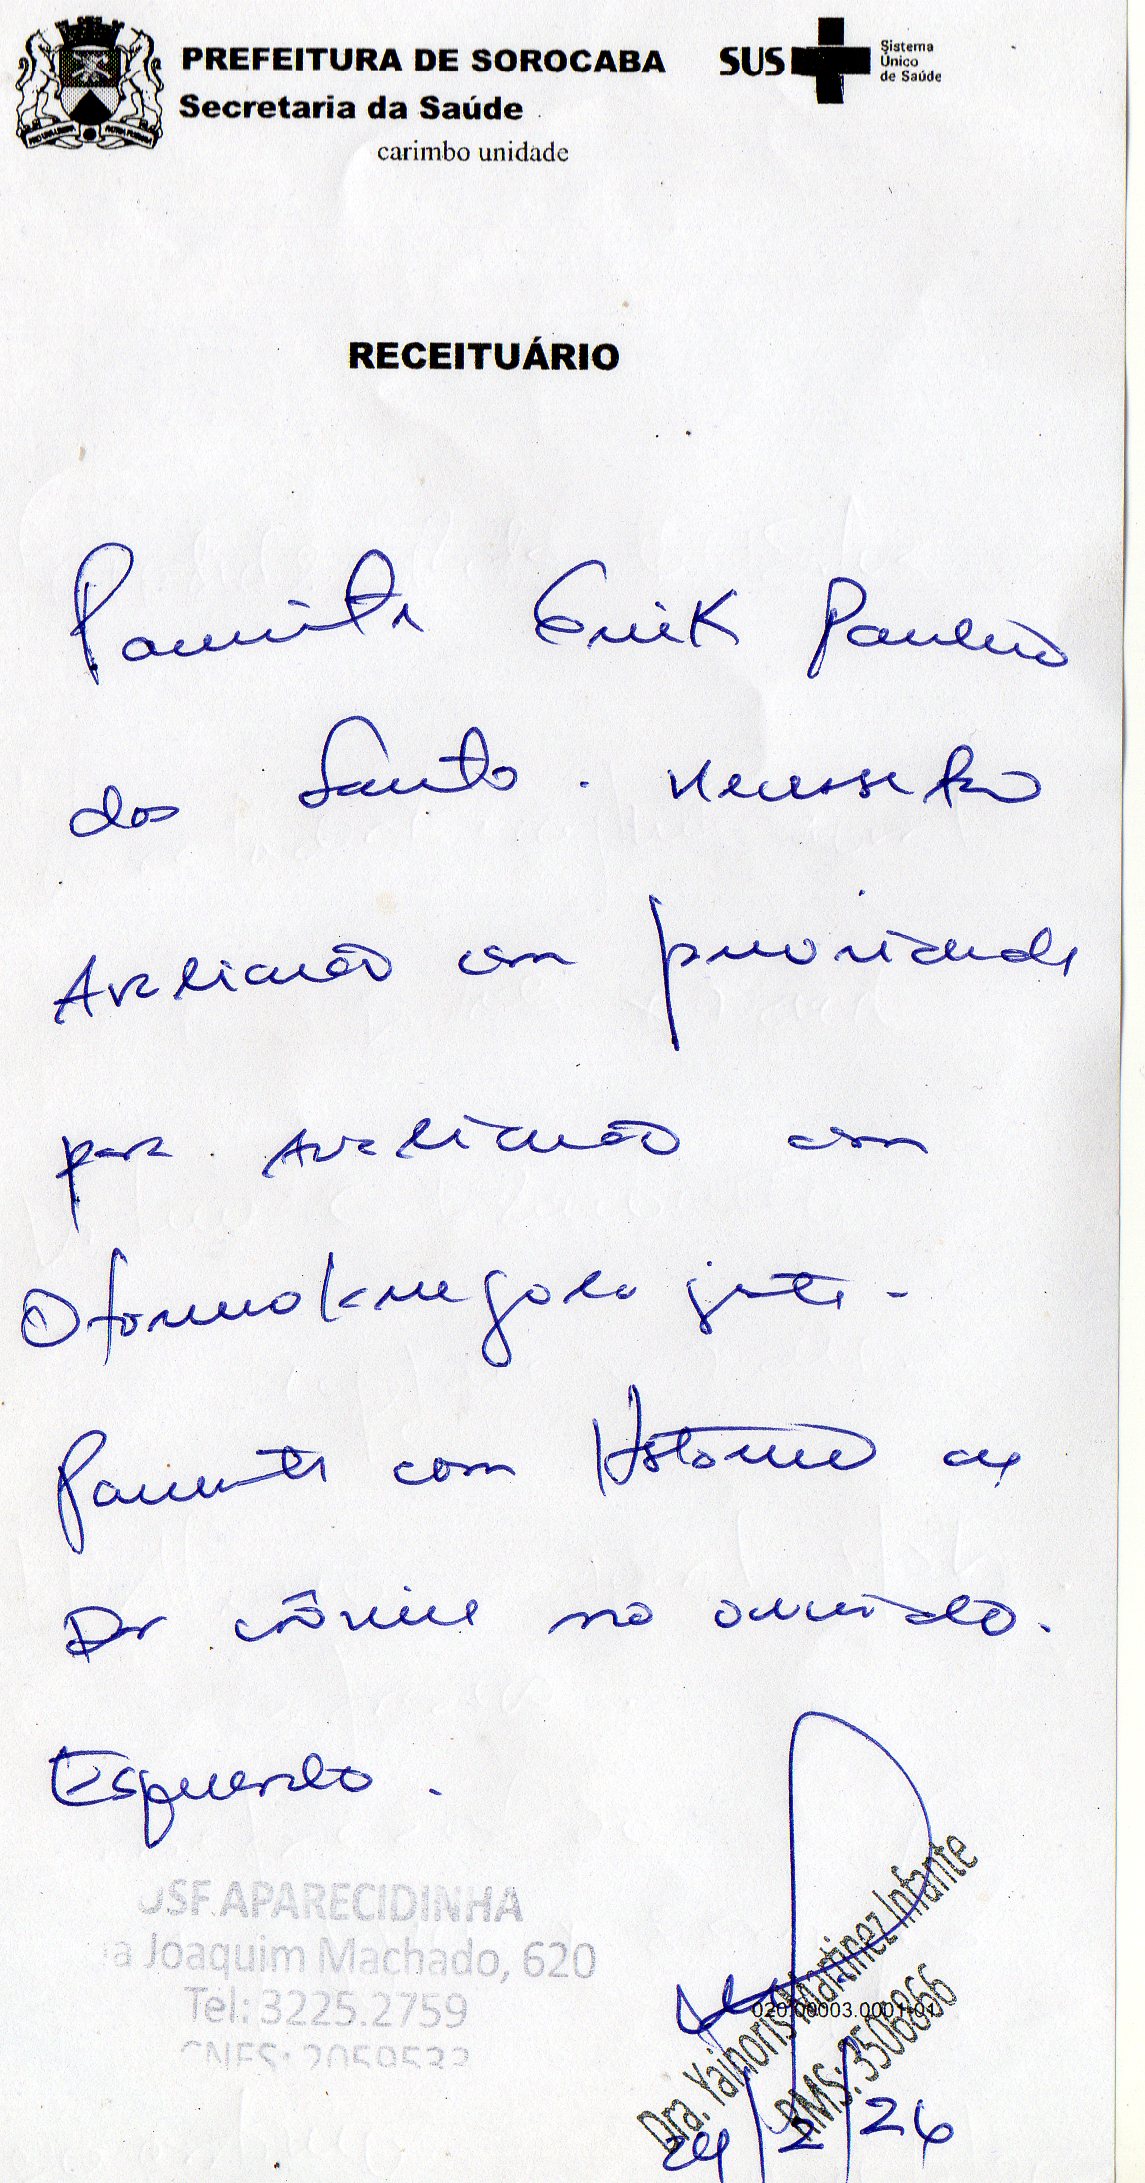 PREFEITURA DE SOROCABA
Secretaria da Saúde
carimbo unidade
SUS
Sistema
Único
de Saúde
RECEITUÁRIO
Paciente Erik Paulino
dos Santo. Necessito
Avaliação com prioridade
para Avaliação com
Otorrinolaringolo gista -
Paciente com Historia de
Dor crônica no ouvido.
Esquerdo.
USF.APARECIDINHA
Joaquim Machado, 620
Tel: 3225.2759
CNES: 2059533
Dra. Yainoris Martinez Infante
RMS: 3506866
020.00003.0001-01
24/2/26